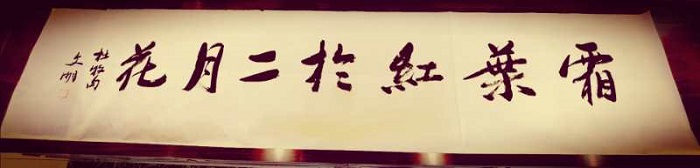 霜葉紅於二月花
杜牧句
文明